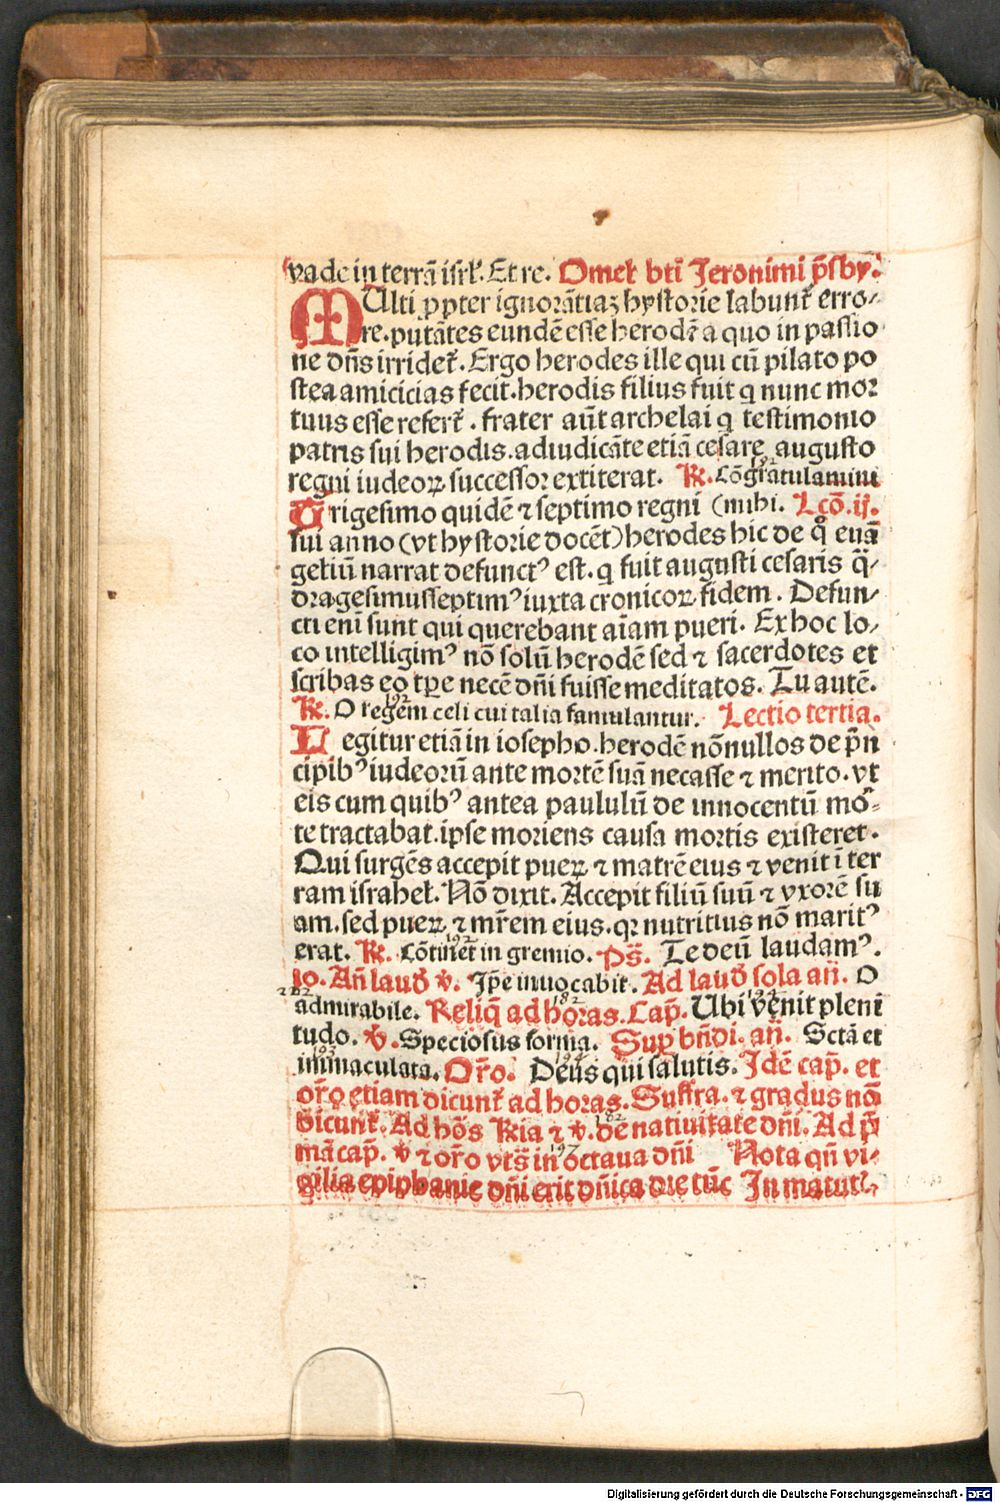 vade in terrā isrl̕. Et re. Omel̕ bti̅ Jeronimi p̄sby̕.
MUlti ꝓpter ignorātiaꝫ hystorie labunt̕ erro⸗
re. putātes eundē esse herodē a quo in passio
ne dn̄s irridet̕. Ergo herodes ille qui cū pilato po
stea amicicias fecit. herodis filius fuit q nunc mor
tuus esse refert̕. frater aūt archelai q testimonio
patris sui herodis. adiudicāte etiā cesare augusto
regni iudeoꝝ successor extiterat. ℟. Cōgratulamini
Trigesimo quidē ⁊ septimo regni (mihi. Lcō. ij.
sui anno (vt hystorie docēt) herodes hic de qͦ euā
geliū narrat defunctꝰ est. q fuit augusti cesaris q̈⸗
dragesimusseptimꝰ iuxta cronicoꝝ fidem. Defun⸗
cti eni̅ sunt qui querebant ai̅am pueri. Ex hoc lo⸗
co intelligimꝰ nō solū herodē sed ⁊ sacerdotes et
scribas eo tp̄e necē dn̄i fuisse meditatos. Tu autē.
℟. O regem celi cui talia famulantur. Lectio tertia.
Legitur etiā in iosepho. herodē nōnullos de p̄n
cipibꝰ iudeorū ante mortē suā necasse ⁊ merito. vt
eis cum quibꝰ antea paululū de innocentū mo̕⸗
te tractabat. ipse moriens causa mortis existeret.
Qui surgēs accepit pueꝝ ⁊ matrē eius ⁊ venit i̅ ter
ram israhel̕. Nō dixit. Accepit filiū suū ⁊ vxorē su
am. sed pueꝝ ⁊ mr̄em eius. qꝛ nutritius nō maritꝰ
erat. ℟. Cōtinet in gremio. Ps̄. Te deū laudamꝰ.
Añ laud̕ ℣. Ip̄e inuocabit. Ad laud̕ sola añ. O
admirabile. Reliq̄ ad horas. Cap̄. Ubi venit pleni̅
tudo. ℣. Speciosus forma. Sup bn̄di. añ. Sctā et
immaculata. Or̄o. Deus qui salutis. Idē cap̄. et
or̄o etiam dicunt̕ ad horas. Suffra. ⁊ gradus nō
dicunt̕. Ad ho̅s Kria ⁊ ℣. de natiuitate dn̄i. Ad p̄
mā cap̄. ℣ ⁊ or̄o vts̄ in octaua dn̄i Nota qn̄ vi⸗
gilia epiphanie dn̄i erit dn̄ica die tūc In matut̕
192
192
192
202
182
194
193
194
182
197
Digitalisierung gefördert durch die Deutsche Forschungsgemeinschaft - DFG